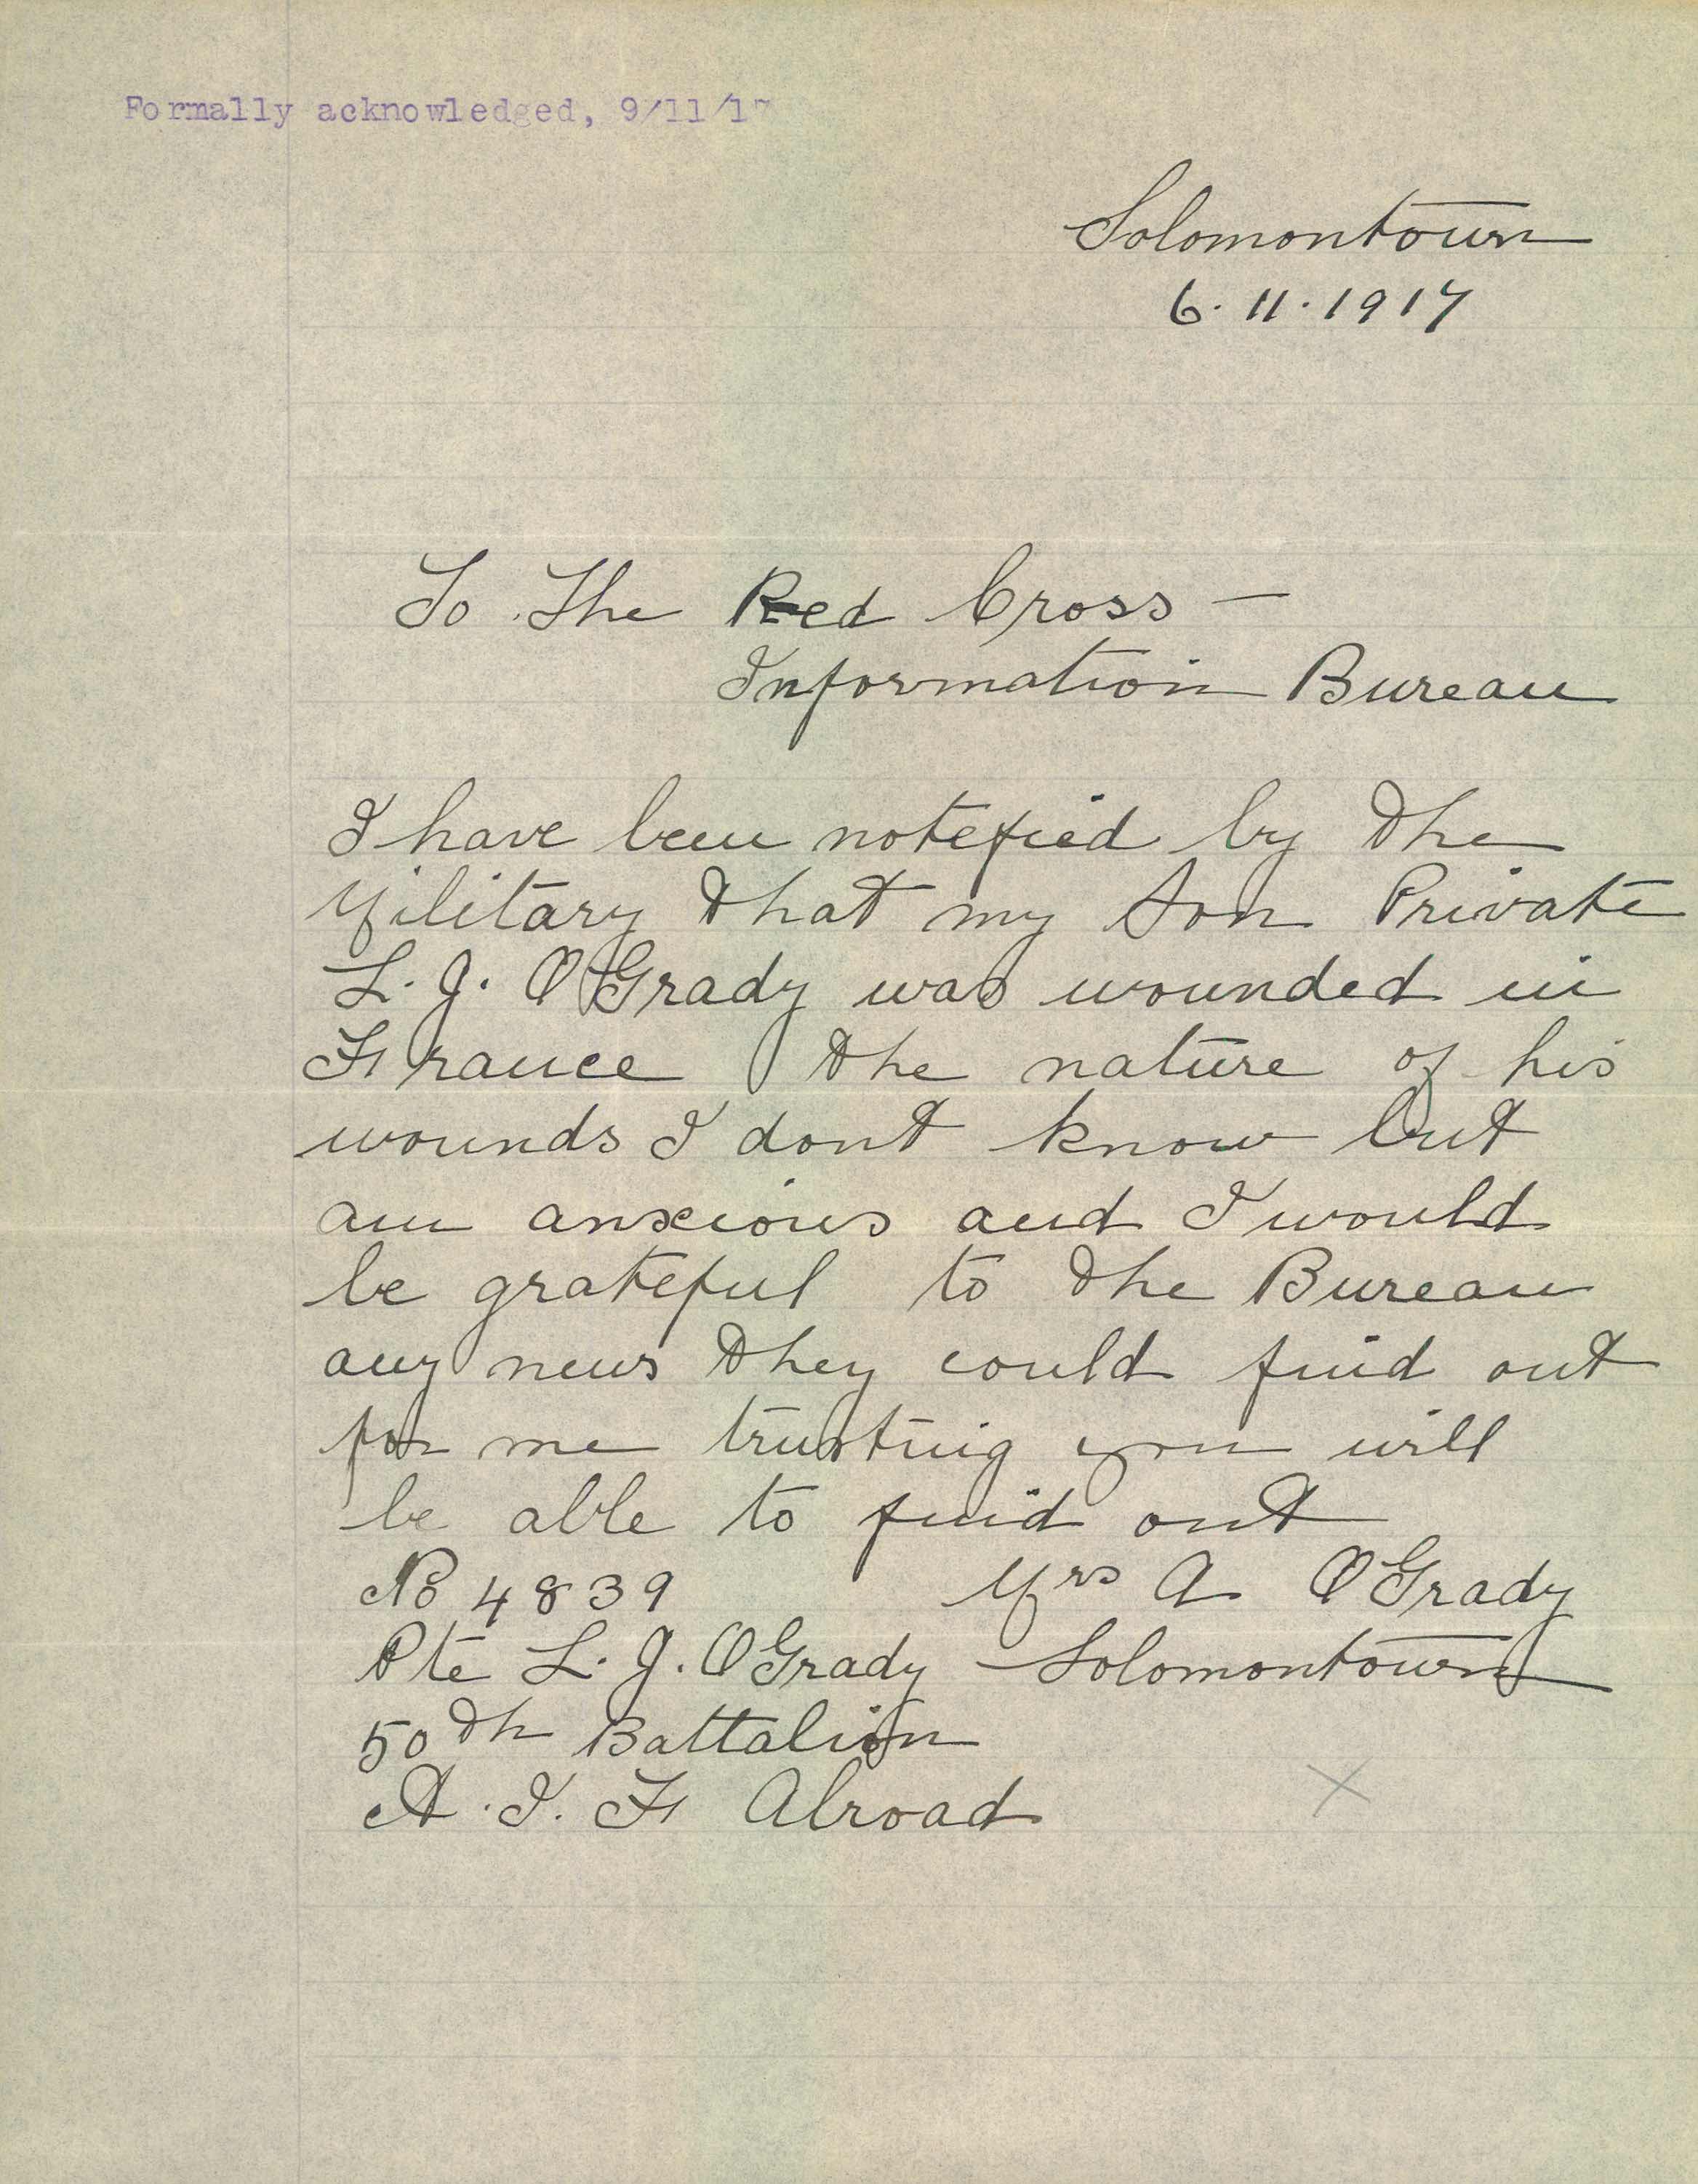 Formally acknowledged, 9/11/17
Solomontown
6.11.1917
To The Red Cross —
Information Bureau
I have been notefied by the
Military that my Son Private
L. J. O'Grady was wounded in
France the nature of his
wounds I dont know but
am anxious and I would
be grateful to the Bureau
any news they could find out
for me trusting you will
be able to find out
No 4839 Mrs A O'Grady
Pte L. J. O'Grady Solomontown
50th Battalion
A. I. F Abroad
X